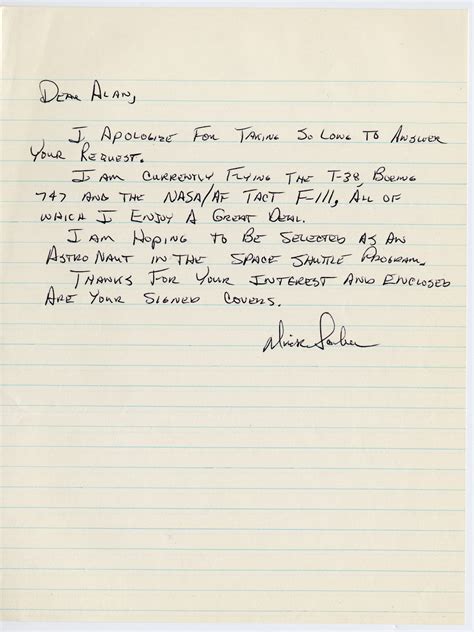 Dear Alan,
I Apologize For Taking So Long To Answer
Your Request.
I am Currently Flying The T-38, Boeing
747 and the NASA/AF TACT F-111, All of
which I Enjoy A Great Deal.
I am Hoping to Be Selected as an
Astro Naut in the Space Shuttle Program.
Thanks For Your Interest and Enclosed
Are Your Signed Covers.